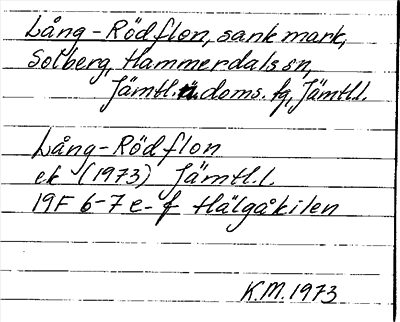 Lång-Rödflon, sank mark,
Solberg, Hammerdals sn,
Jämtl. n. doms. fg, Jämtl.l.
Lång-Rödflon
ek (1973) Jämtl.l.
19F 6-7 e-f Hälgåkilen
K.M. 1973